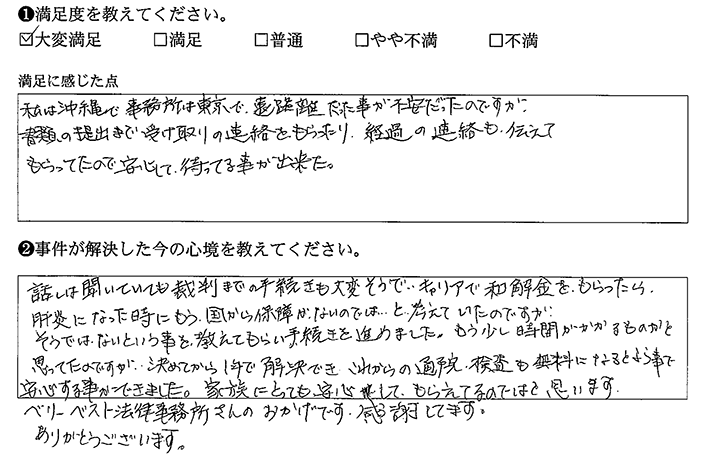 ❶満足度を教えてください。
☑大変満足 □満足 □普通 □やや不満 □不満
満足に感じた点
私は沖縄で事務所は東京で、遠距離だった事が不安だったのですが、
書類の提出まで受け取りの連絡をもらったり、経過の連絡も、伝えて
もらってたので安心して、待ってる事が出来た。
❷事件が解決した今の心境を教えてください。
話しは聞いていても裁判までの手続きも大変そうで‥キャリアで和解金をもらったら、
肝炎になった時にもう、国から保障がないのでは…と、考えていたのですが、
そうではないという事を教えてもらい手続きを進めました。もう少し時間がかかるものかと
思ってたのですが‥決めてから1年で解決でき、これからの通院、検査も無料になるとゆう事で
安心する事ができました。家族にとても安心して、もらえてるのではと思います。
ベリーベスト法律事務所さんのおかげです。感謝してます。
ありがとうございます。